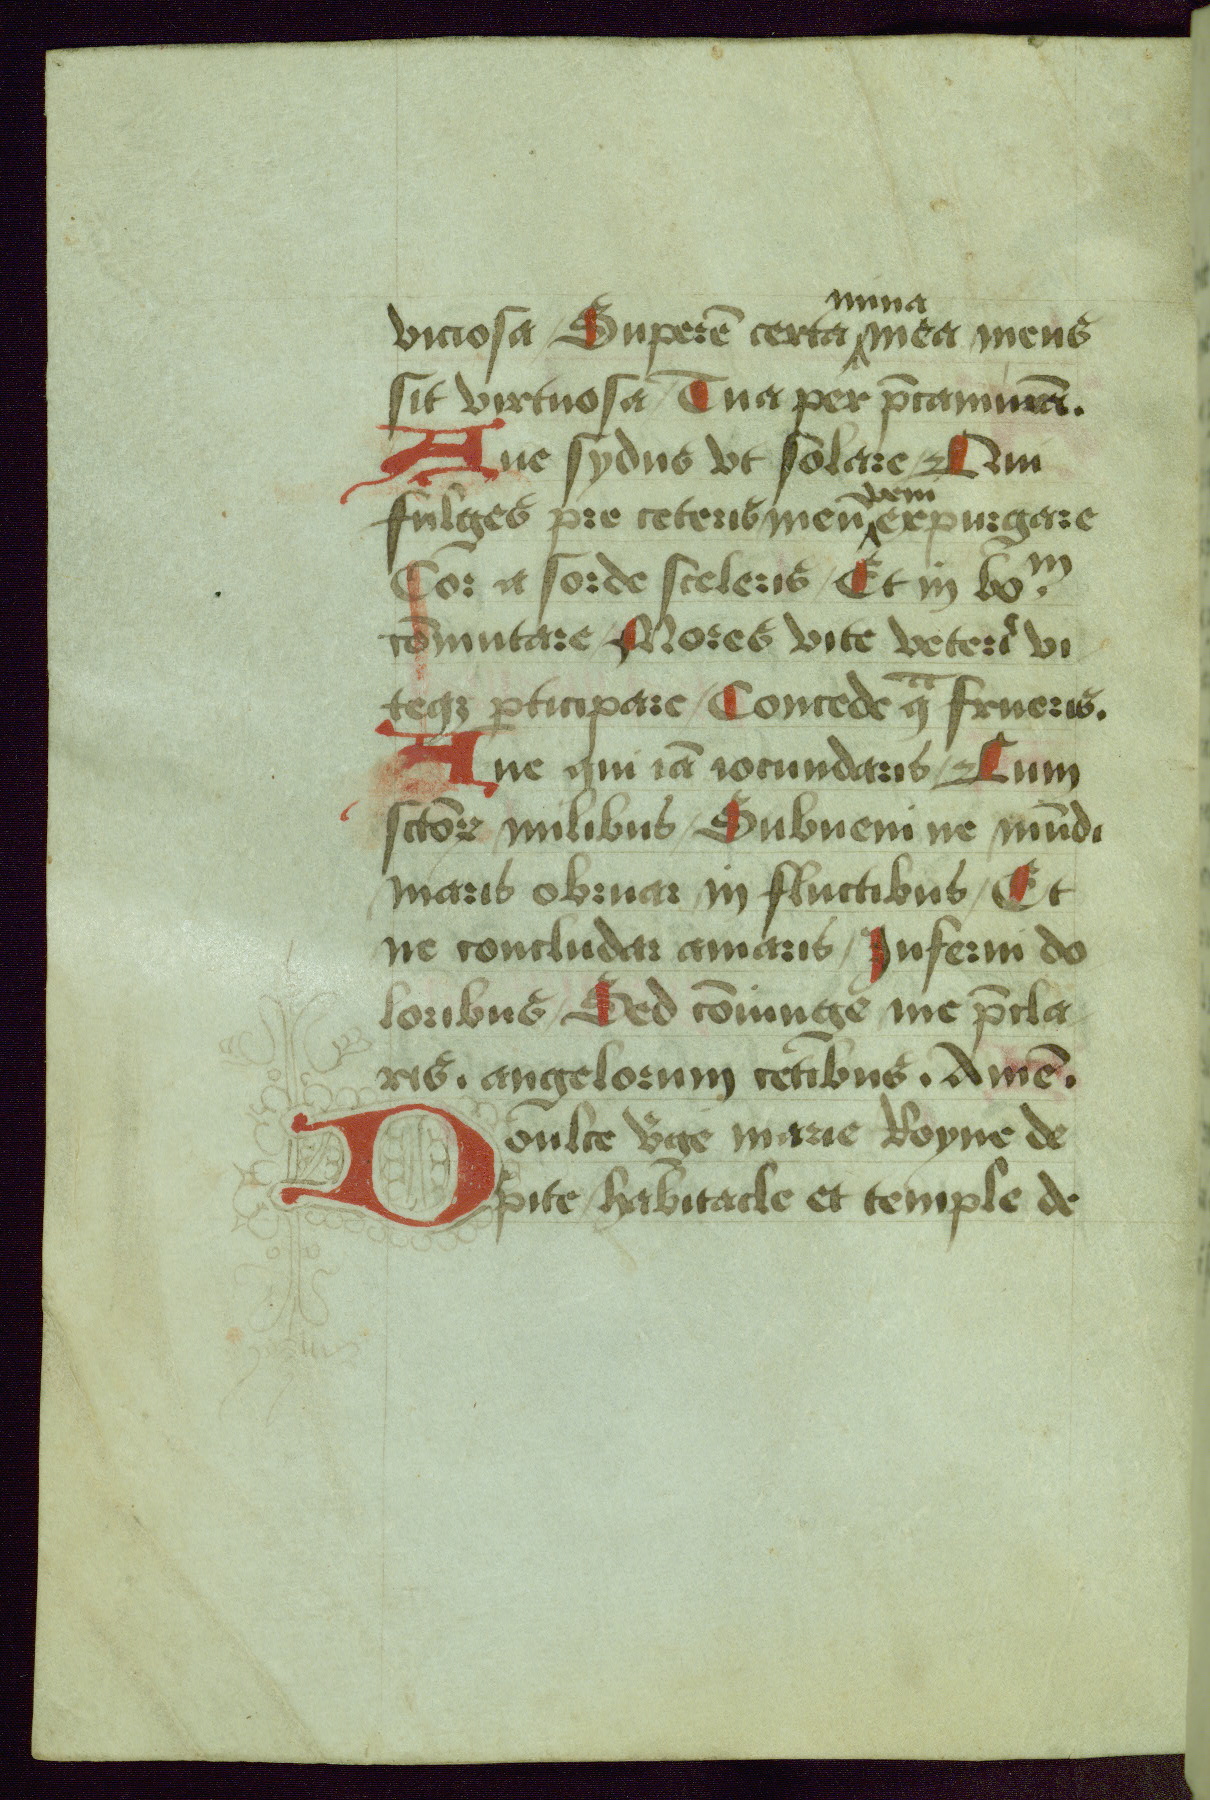 mina
viciosa / Superē certa mea mens
sit virtuosa / Tua per p̄camina.
Aue sydus vt solare / Qui
veni
fulges pre ceteris meū expurgare
Cor a sorde sceleris / Et in bo.m
cōmutare / Mores vite veteris vi
teqꝫ ꝑticipare / Concede q̄ frueris.
Aue qui iā iocundaris / Cum
sctōꝝ milibus / Subueni ne mūdi
maris obruar in fluctibus / Et
ne concludar amaris / Inferni do
loribus / Sed cōiunge me p̄cla
ris . angelorum cetibus . Amē .
Doulce v̄ge marie Royne de
pite / habitacle et temple de